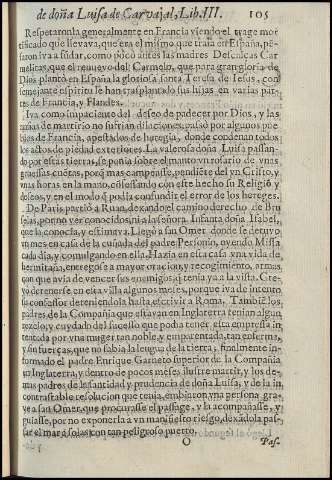 de doña Luisa de Carvajal, Lib. III. 105
Respetaronla generalmente en Francia viendo el trage mor
tificado que llevava, que era el mismo que traia en España, pe-
saron iva a fudar, como poco antes las madres Descalças Car
melitas, que el nuevo del Carmelo, que para gran gloria de
Dios plantò en España la gloriosa santa Teresa de Jesus, con
semejante espiritu le han trasplantado sus hijas en varias par-
tes de Francia, y Flandes.
Iva como impaciente del deseo de padecer por Dios, y las
ansias de martirio no sufrian dilaciones, passò por algunos pue
blos de Francia, apestados de heregia, donde condenan todos
los actos de piedad exteriores. La valerosa doña Luisa passan-
do por estas tierras, se ponia sobre el manto vn rosario de vnas
gruessas cuētas, porq̃ mas campeasse, pendiēte del vn Cristo, y
vnas horas en la mano, cōfessando con este hecho su Religiō y
deseos, y en el modo q̃ podia confundir el error de los hereges.
De Paris partiò a Ruan, dexando el camino derecho de Bru
selas, por no ver conocidos, ni a la señora Infanta doña Isabel,
que la conocia, y estimava. Llegò a san Omer, donde se detuvo
vn mes en casa de la cuñada del padre Personio, oyendo Missa
cada dia, y comulgando en ella. Hazia en esta casa vna vida de
hermitaña, entregose a mayor oracion, y recogimiento, armas
con que avia de vencer sus enemigos, q̃ tenia ya a la vista. Cre-
yò detenerse en esta villa algunos meses, porque iva de intento
su confessor deteniendola hasta escrivir a Roma. Tambiē los
padres de la Compañia que estavan en Inglaterra tenian algun
rezelo, y cuydado del sucesso que podia tener esta empresa in-
tentada por vna muger tan noble, y emparentada, tan enferma,
y sin fuerças, que no sabia la lengua de la tierra, finalmente in-
formado el padre Enrique Garneto superior de la Compañia
en Inglaterra, y dentro de pocos meses ilustre martir, y los de-
mas padres de la santidad y prudencia de doña Luisa, y de la in
contrastable resolucion que tenia, embiaron vna persona gra-
ve a san Omer, que procurasse el passage, y la acompañasse, y
guiasse, por no exponerla a vn manifiesto riesgo, dexādola pas-
sar el mar a solas con tan peligroso puerto.
O Pas-